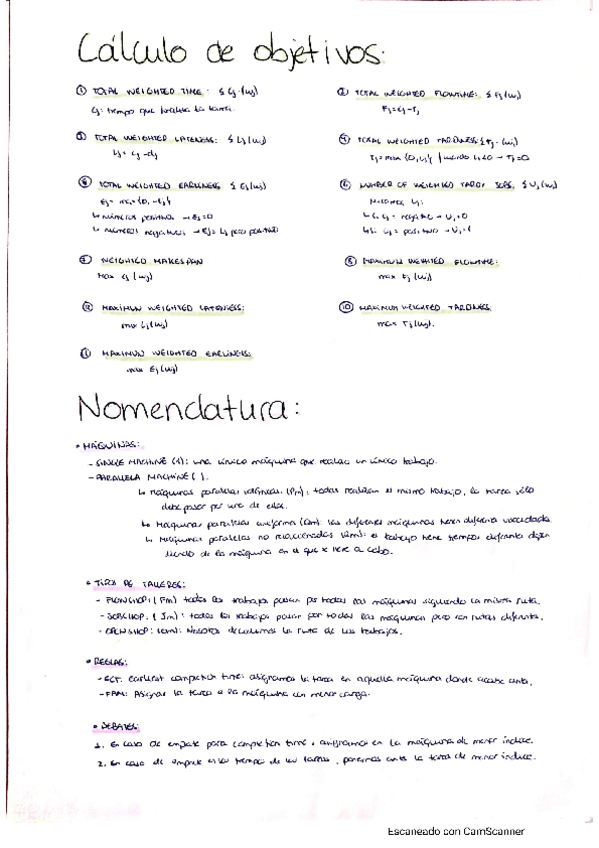 Cálculo de objetivos:
① TOTAL WEIGHTED TIME: Σ Cj (wj)
Cj: tiempo que finaliza la tarea.
② TOTAL WEIGHTED FLOWTIME: Σ Fj (wj)
Fj = Cj - rj
③ TOTAL WEIGHTED LATENESS: Σ Lj (wj)
Lj = Cj - dj
④ TOTAL WEIGHTED TARDINESS: Σ Tj · (wj)
Tj = max {0, Lj} / cuando Lj<0 → Tj=0
⑤ TOTAL WEIGHTED EARLINESS Σ Ej (wj)
Ej = max {0, -Lj}
↳ números positivos → Ej=0
↳ números negativos → Ej= Lj pero positivo
⑥ NUMBER OF WEIGHTED TARDY JOBS: Σ Uj (wj)
Lj:
↳ Si Lj = negativo → Uj=0
↳ Si Lj = positivo → Uj=1
⑦ WEIGHTED MAKESPAN
Max Cj (wj)
⑧ MAXIMUN WEIGHTED FLOWTIME:
max Fj (wj)
MAXIMUN WEIGHTED LATENESS:
max Lj (wj)
⑩ MAXIMUN WEIGHTED TARDINESS:
max Tj (wj).
MAXIMUN WEIGHTED EARLINESS:
max Ej (wj)
Nomenclatura:
• MÁQUINAS:
- SINGLE MACHINE (1): una única máquina que realiza un único trabajo.
- PARALLELA MACHINE ( ).
↳ Máquinas paralelas idénticas (Pm): todas realizan el mismo trabajo, la tarea sólo
debe pasar por una de ellas.
↳ Máquinas paralelas uniforma (Qm). las diferentes máquinas tienen diferente velocidad.
↳ Máquinas paralelas no relacionadas (Rm): el trabajo tiene tiempos diferente
de la máquina en el que se lleve a cabo.
• TIPOS DE TALLERES:
- FLOWSHOP: (Fm) todos los trabajos pasan por todas las máquinas siguiendo la misma ruta.
- JOBSHOP: (Jm): todos los trabajos pasan por todas las máquinas pero con rutas diferente.
- OPENSHOP: (Om): Nosotros decidimos la ruta de los trabajos.
• REGLAS:
- ECT: earliest completion time: asignamos la tarea en aquella máquina donde acabe antes.
- FAM: Asignar la tarea a la máquina con menor carga.
• DEBATES:
1. En caso de empate para completion time, asignamos en la máquina de menor índice.
2. En caso de empate en los tiempos de las tareas, ponemos antes la tarea de menor índice.
Escaneado con CamScanner